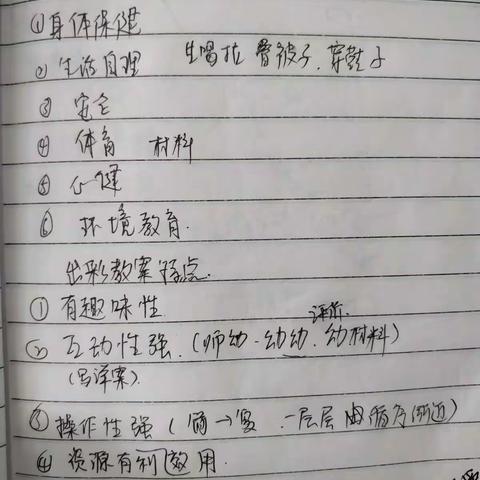 ①身体保健
②生活自理 生喝拉 叠被子、穿鞋子
③ 安全
④ 体育 材料
⑤ 心健
⑥ 环境教育.
出彩教案特点.
① 有趣味性
② 互动性强.(师幼-幼幼、幼材料)
(写详案).
③操作性强( 简→ 一层层由 序渐近)
④ 资源有利 用.